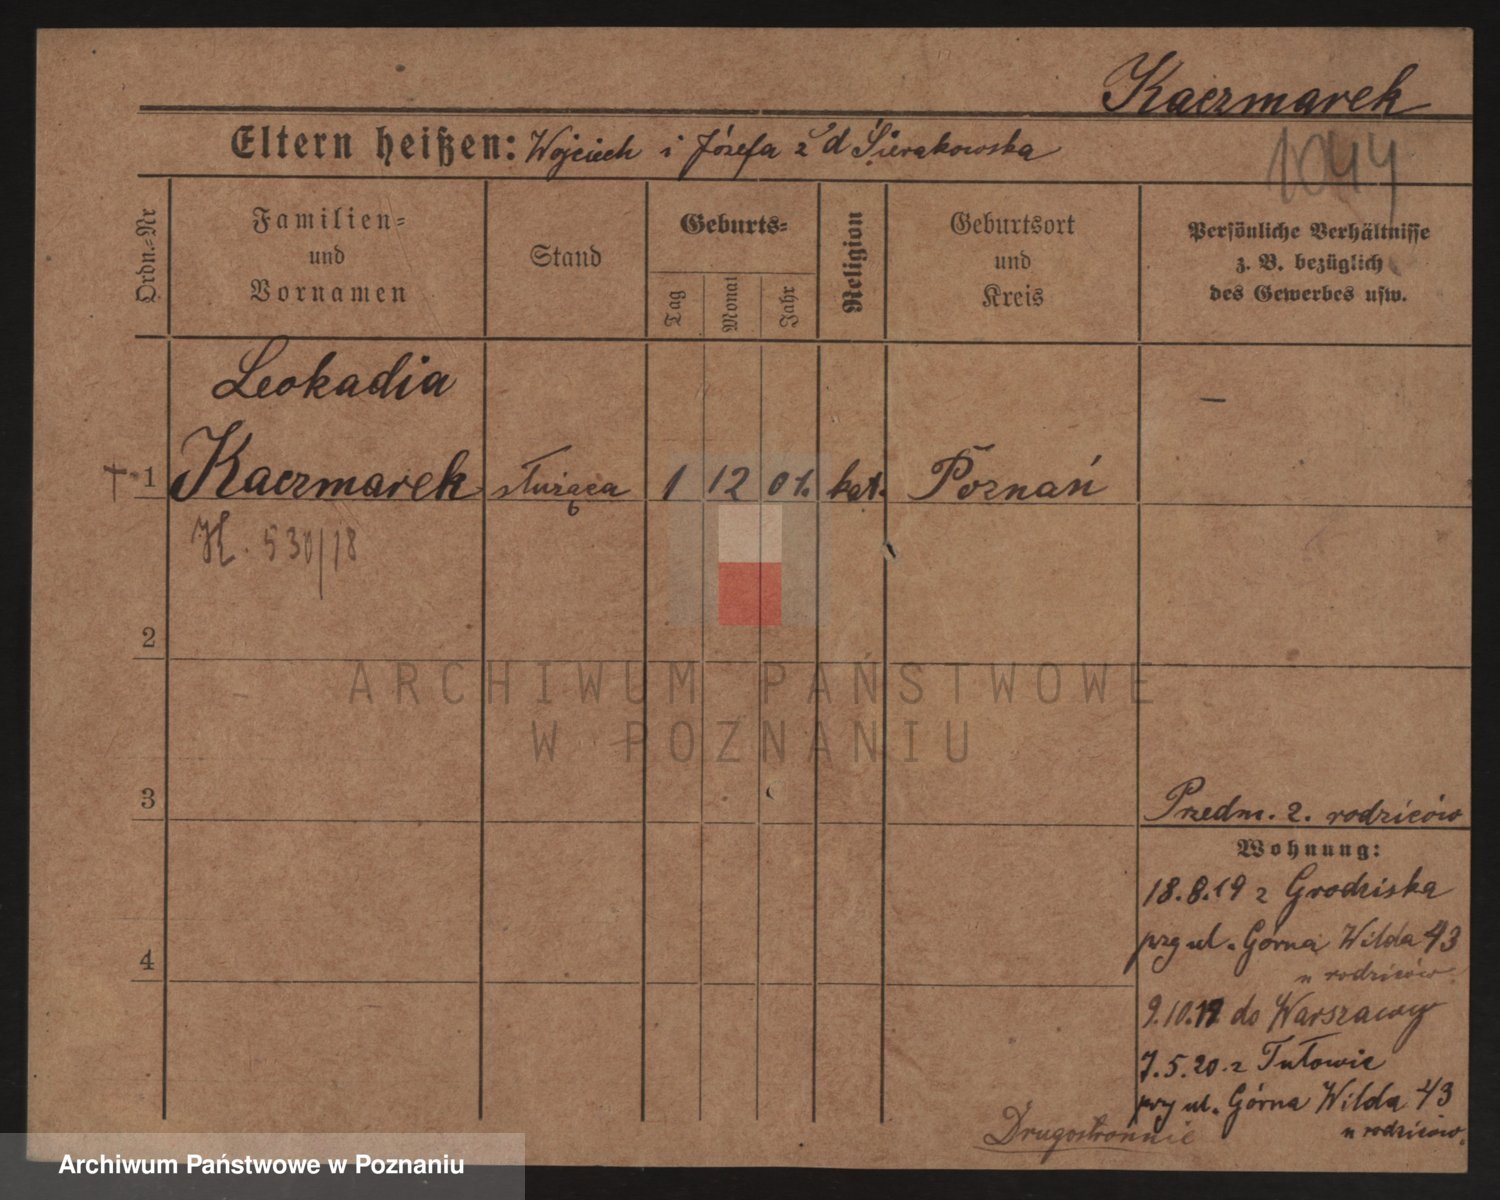 Kaczmarek
Eltern heißen: Wojciech i Józefa z d Sierakowska
1044
Ordn.-Nr
Familien-
und
Vornamen
Stand
Geburts-
Tag
Monat
Jahr
Religion
Geburtsort
und
Kreis
Persönliche Verhältnisse
z. B. bezüglich
des Gewerbes usw.
Leokadia
—
+ 1 Kaczmarek służąca 1 12 01. kat. Poznań
530/18
2
ARCHIWUM PAŃSTWOWE
W POZNANIU
3
Przedm. z. rodziców
Wohnung:
18.8.19 z Grodziska
przy ul. Górna Wilda 43
u rodziców.
4
9.10.19 do Warszawy
7.5.20 z Tułowic
przy ul. Górna Wilda 43
u rodziców.
Drugostronnie
Archiwum Państwowe w Poznaniu